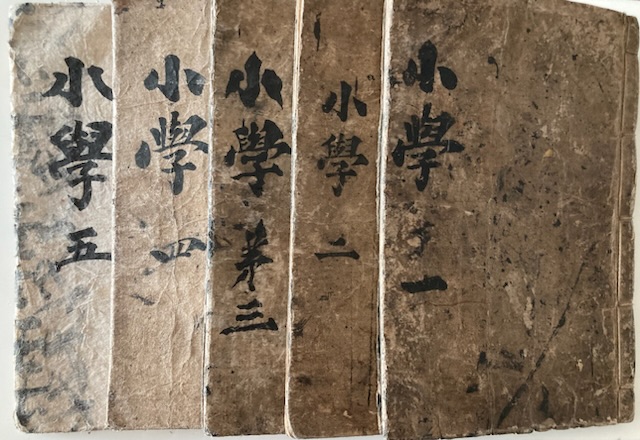 小學一
小學二
小學第三
小學四
小學五